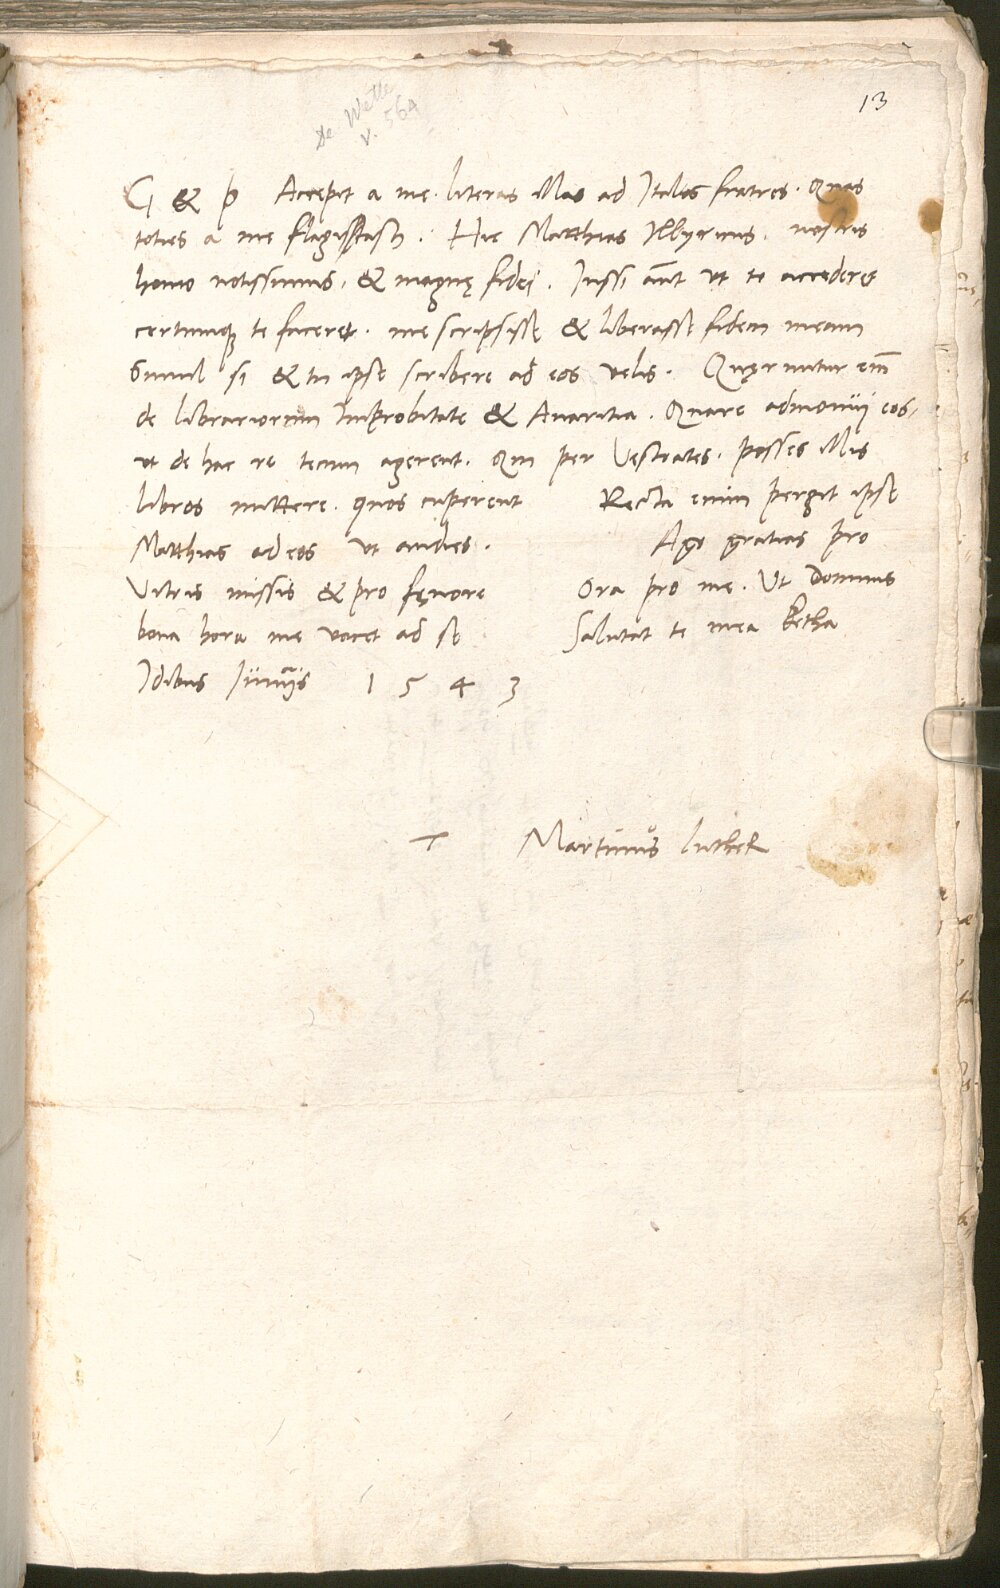 13
de Wette
v. 564
G & p Accepit a me literas illas ad Italos fratres. Quas
toties a me flagitasti. Hic Matthias Illyricus. nostris
homo notissimus, & magnę fidei. Iussi aūt ut te accederet
certumq; te faceret. me scripsisse & liberasse fidem meam
Simul si & tu ipse scribere ad eos velis. Quęruntur em̄
de librariorum Improbitate & Avaritia. Quare admonui eos,
ut de hac re tecum agerent. Qm per Vestrates. posses illis
libros mittere. quos cuperent Recta enim pergit ipse
Matthias ad eos ut audies. Ago gratias pro
Vitris missis & pro fęnore Ora pro me. Ut Dominus
bona hora me vocet ad se Salutat te mea Ketha
Idibus Iunijs 1 5 4 3
T Martinus Luther